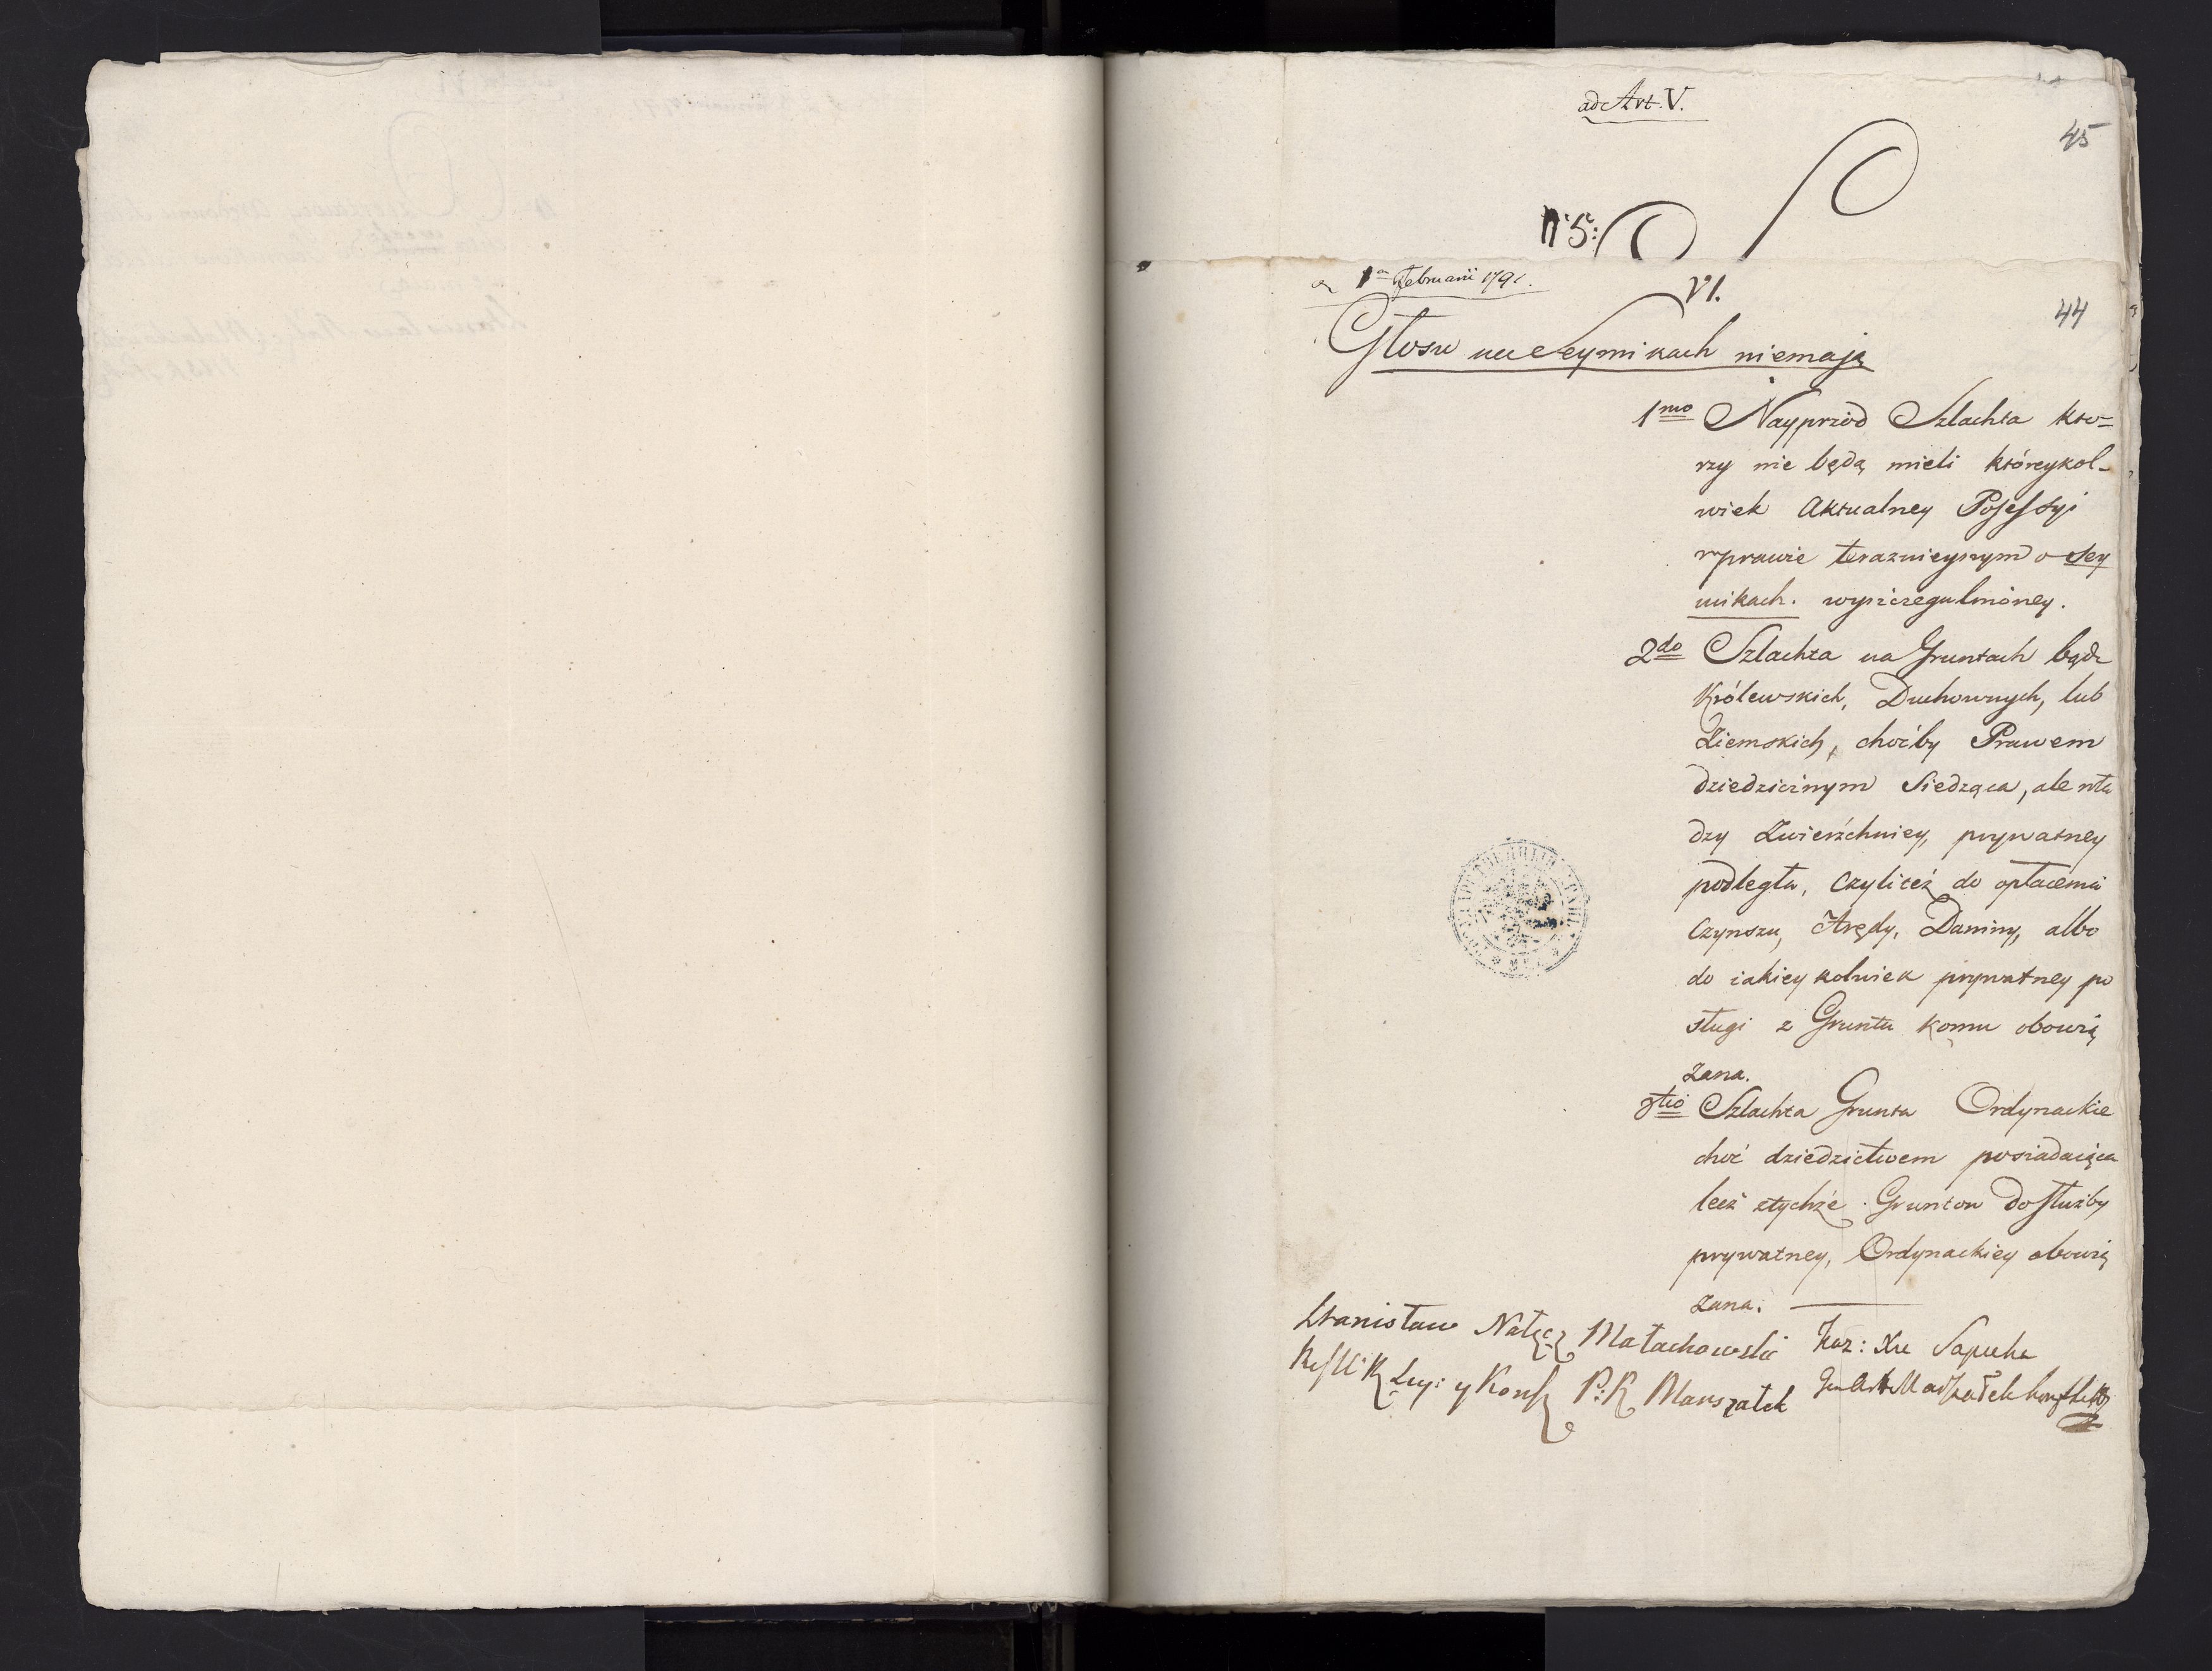 ad Art. V.
45
N 5:
a 1ª Februarii 1791.
VI.
44
Głosu na Seymikach niemaią
1mo Nayprzód Szlachta kto=
rzy nie będą mieli któreykol-
wiek Aktualney Possessyi
w prawie teraznieyszym o Sey
mikach. wyszczegulnioney.
2do Szlachta na Gruntach bądz
Królewskich, Duchownych, lub
Ziemskich, choćby Prawem
dziedzicznym Siedząca, ale wła
dzy Zwierźchniey, prywatney
podległa, Czyliteż do opłacenia
Czynszu, Arędy, Daniny, albo
do iakiey kolwiek prywatney po
sługi z Gruntu komu obowią
zana.
3tio Szlachta Grunta Ordynackie
choć dziedzictwem posiadaiąca
lecz ztychże Gruntow do służby
prywatney, Ordynackiey obowią
zana.
Stanisław Nałęcz Małachowski
Kaz: Xże Sapieha
Rf Ll: K Sey: y Konf P: K Marszałek
Gen Art Marszałek Konf